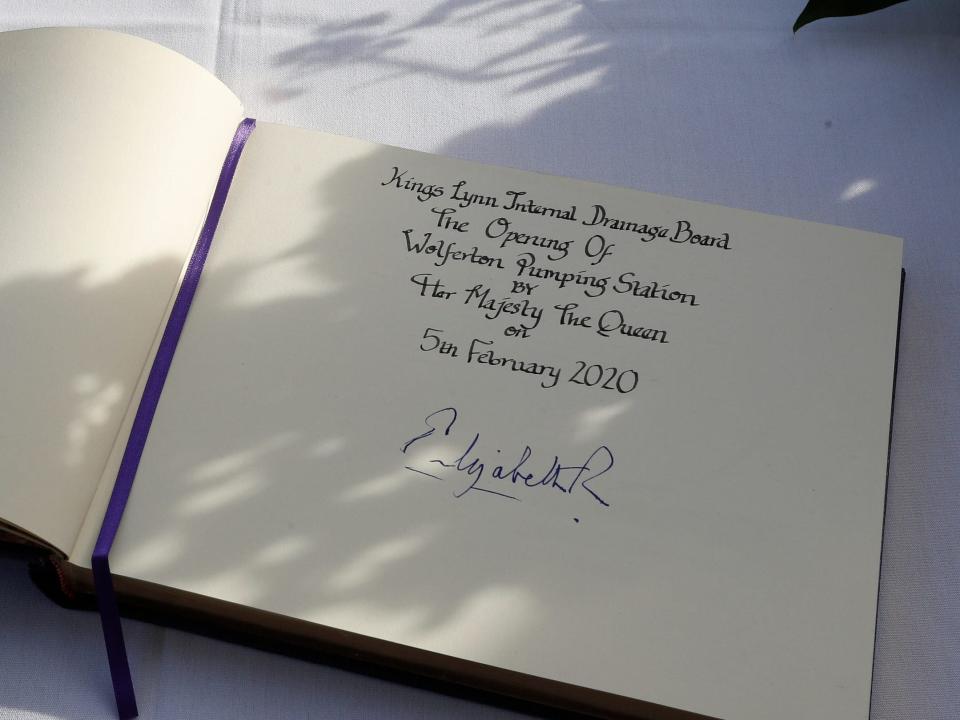 Kings Lynn Internal Drainage Board
The Opening Of
Wolferton Pumping Station
BY
Her Majesty The Queen
on
5th February 2020
Elizabeth R